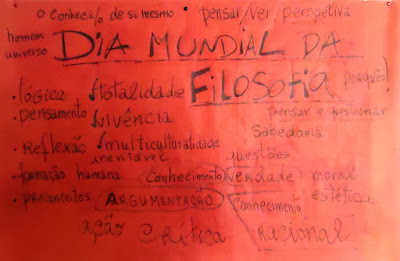 o conheci/o de si mesmo pensar/ver perspetiva
homem
universo
DIA MUNDIAL DA
FILOSOFIA
porquês!
• lógica totalidade
• pensamento vivência
pensar e questionar
sabedoria
• Reflexão multiculturalidade
inevitável
questões
• formação humana conhecimento verdade moral
• preconceitos ARGUMENTAÇÃO conhecimento estética
ação crítica racional